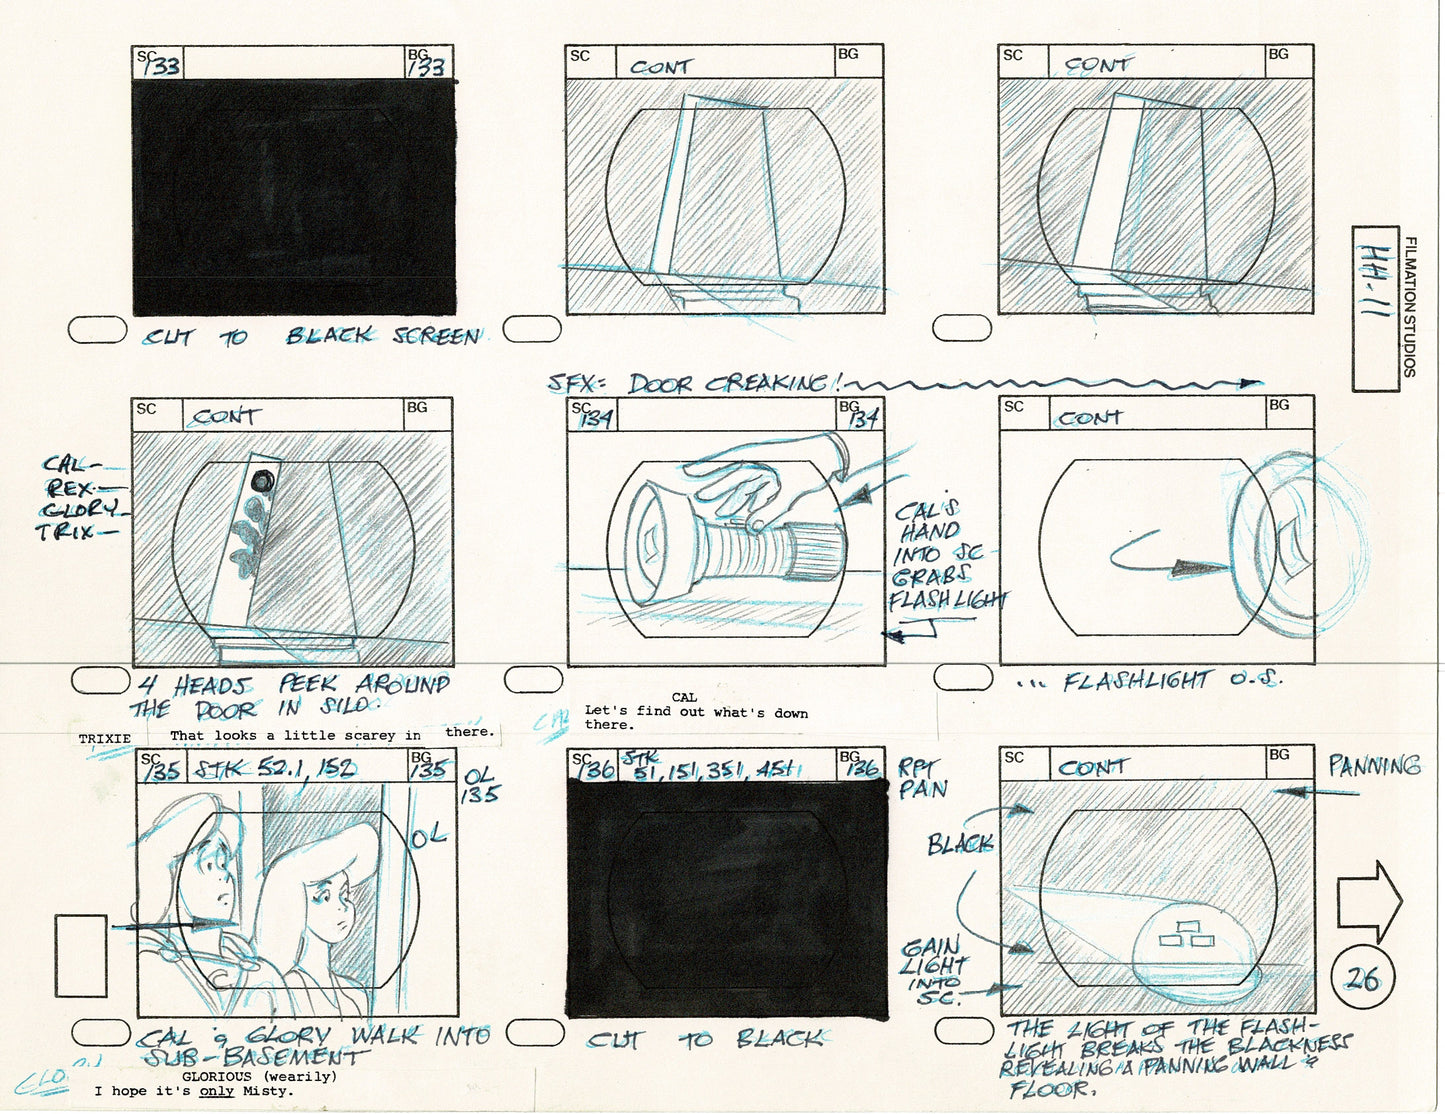 SC 133 BG 133
SC CONT BG
SC CONT BG
CUT TO BLACK SCREEN
FILMATION STUDIOS
HH-11
SFX= DOOR CREAKING!
SC CONT BG
CAL-
REX-
GLORY-
TRIX-
SC 134 BG 134
CAL'S
HAND
INTO SC-
GRABS
FLASHLIGHT
SC CONT BG
4 HEADS PEEK AROUND
THE DOOR IN SILO.
TRIXIE That looks a little scarey in there.
CAL
Let's find out what's down
there.
... FLASHLIGHT O.S.
SC 135 STK 52.1, 152 BG 135
OL
135
OL
CAL & GLORY WALK INTO
SUB-BASEMENT
GLORIOUS (wearily)
I hope it's only Misty.
SC 136 STK 51, 151, 351, 451 BG 136
RPT
PAN
CUT TO BLACK
SC CONT BG
PANNING
BLACK
GAIN
LIGHT
INTO
SC.
26
THE LIGHT OF THE FLASH-
LIGHT BREAKS THE BLACKNESS
REVEALING A PANNING WALL &
FLOOR.